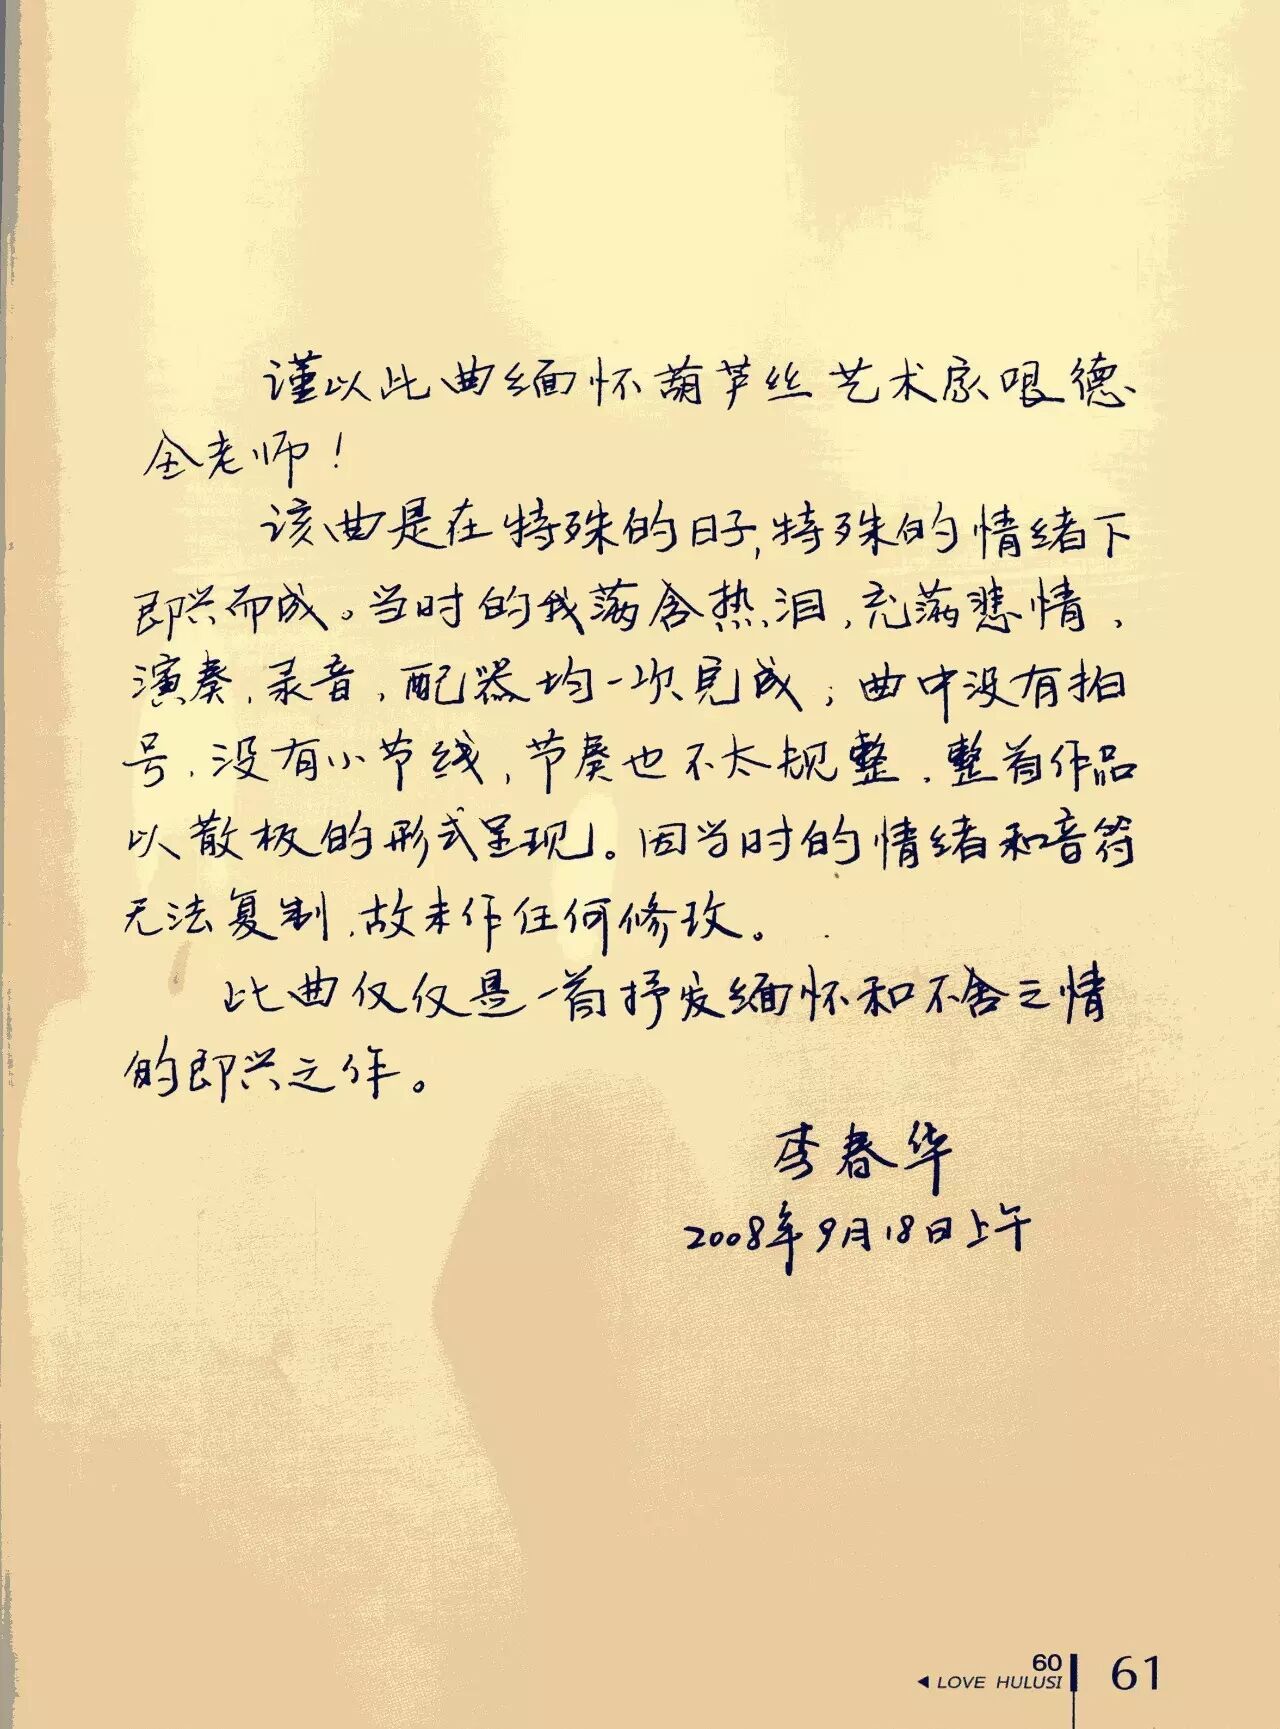 谨以此曲缅怀葫芦丝艺术家哏德
全老师！
该曲是在特殊的日子,特殊的情绪下
即兴而成。当时的我满含热泪,充满悲情,
演奏,录音,配器均一次完成,曲中没有拍
号,没有小节线,节奏也不太规整,整首作品
以散板的形式呈现。因当时的情绪和音符
无法复制,故未作任何修改。
此曲仅仅是一首抒发缅怀和不舍之情
的即兴之作。
李春华
2008年9月18日上午
60
◀ LOVE HULUSI
61